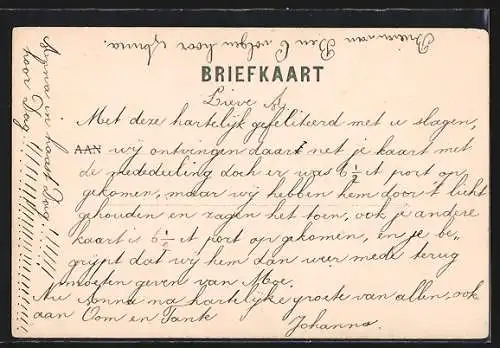 BRIEFKAART
Lieve A.
Met deze hartelijk gefeliteerd met u slagen,
AAN wij ontvingen daar net je kaart met
de mededeeling doch er was 6 1/2 ct port op
gekomen, maar wij hebben hem door 't licht
gehouden en zagen het toen, ook je andere
kaart is 6 1/2 ct port op gekomen, en je be-
grijpt dat wij hem dan weer mede terug
moeten geven van Moe.
Nu Anna na hartelijke groete van allen, ook
aan Oom en Tante
Johanna.
Dag